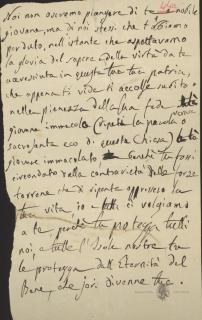 Noi non osiamo piangere di te o nobile
giovane, ma di noi stessi che t'abbiamo
perduto, nell'istante che aspettavamo
la gloria del sapere e della virtù da te
avventuria in questa tua patria,
che appena ti vide ti accolse subito
nella pienezza della sua fede
giovane immacolato (ripeto la parola
sacrosanta eco di questa Chiesa)
giovane immacolato perché tu fossi
circondato dalla contrarietà delle forze
terrene che di repente oppressero la
tua vita, io e tutti ci volgiamo
a te, perché tu protegga tutti
noi, e tutte l'Isole nostre tu
le protegga dall'Eternità del
Bene, che jeri divenne tua.